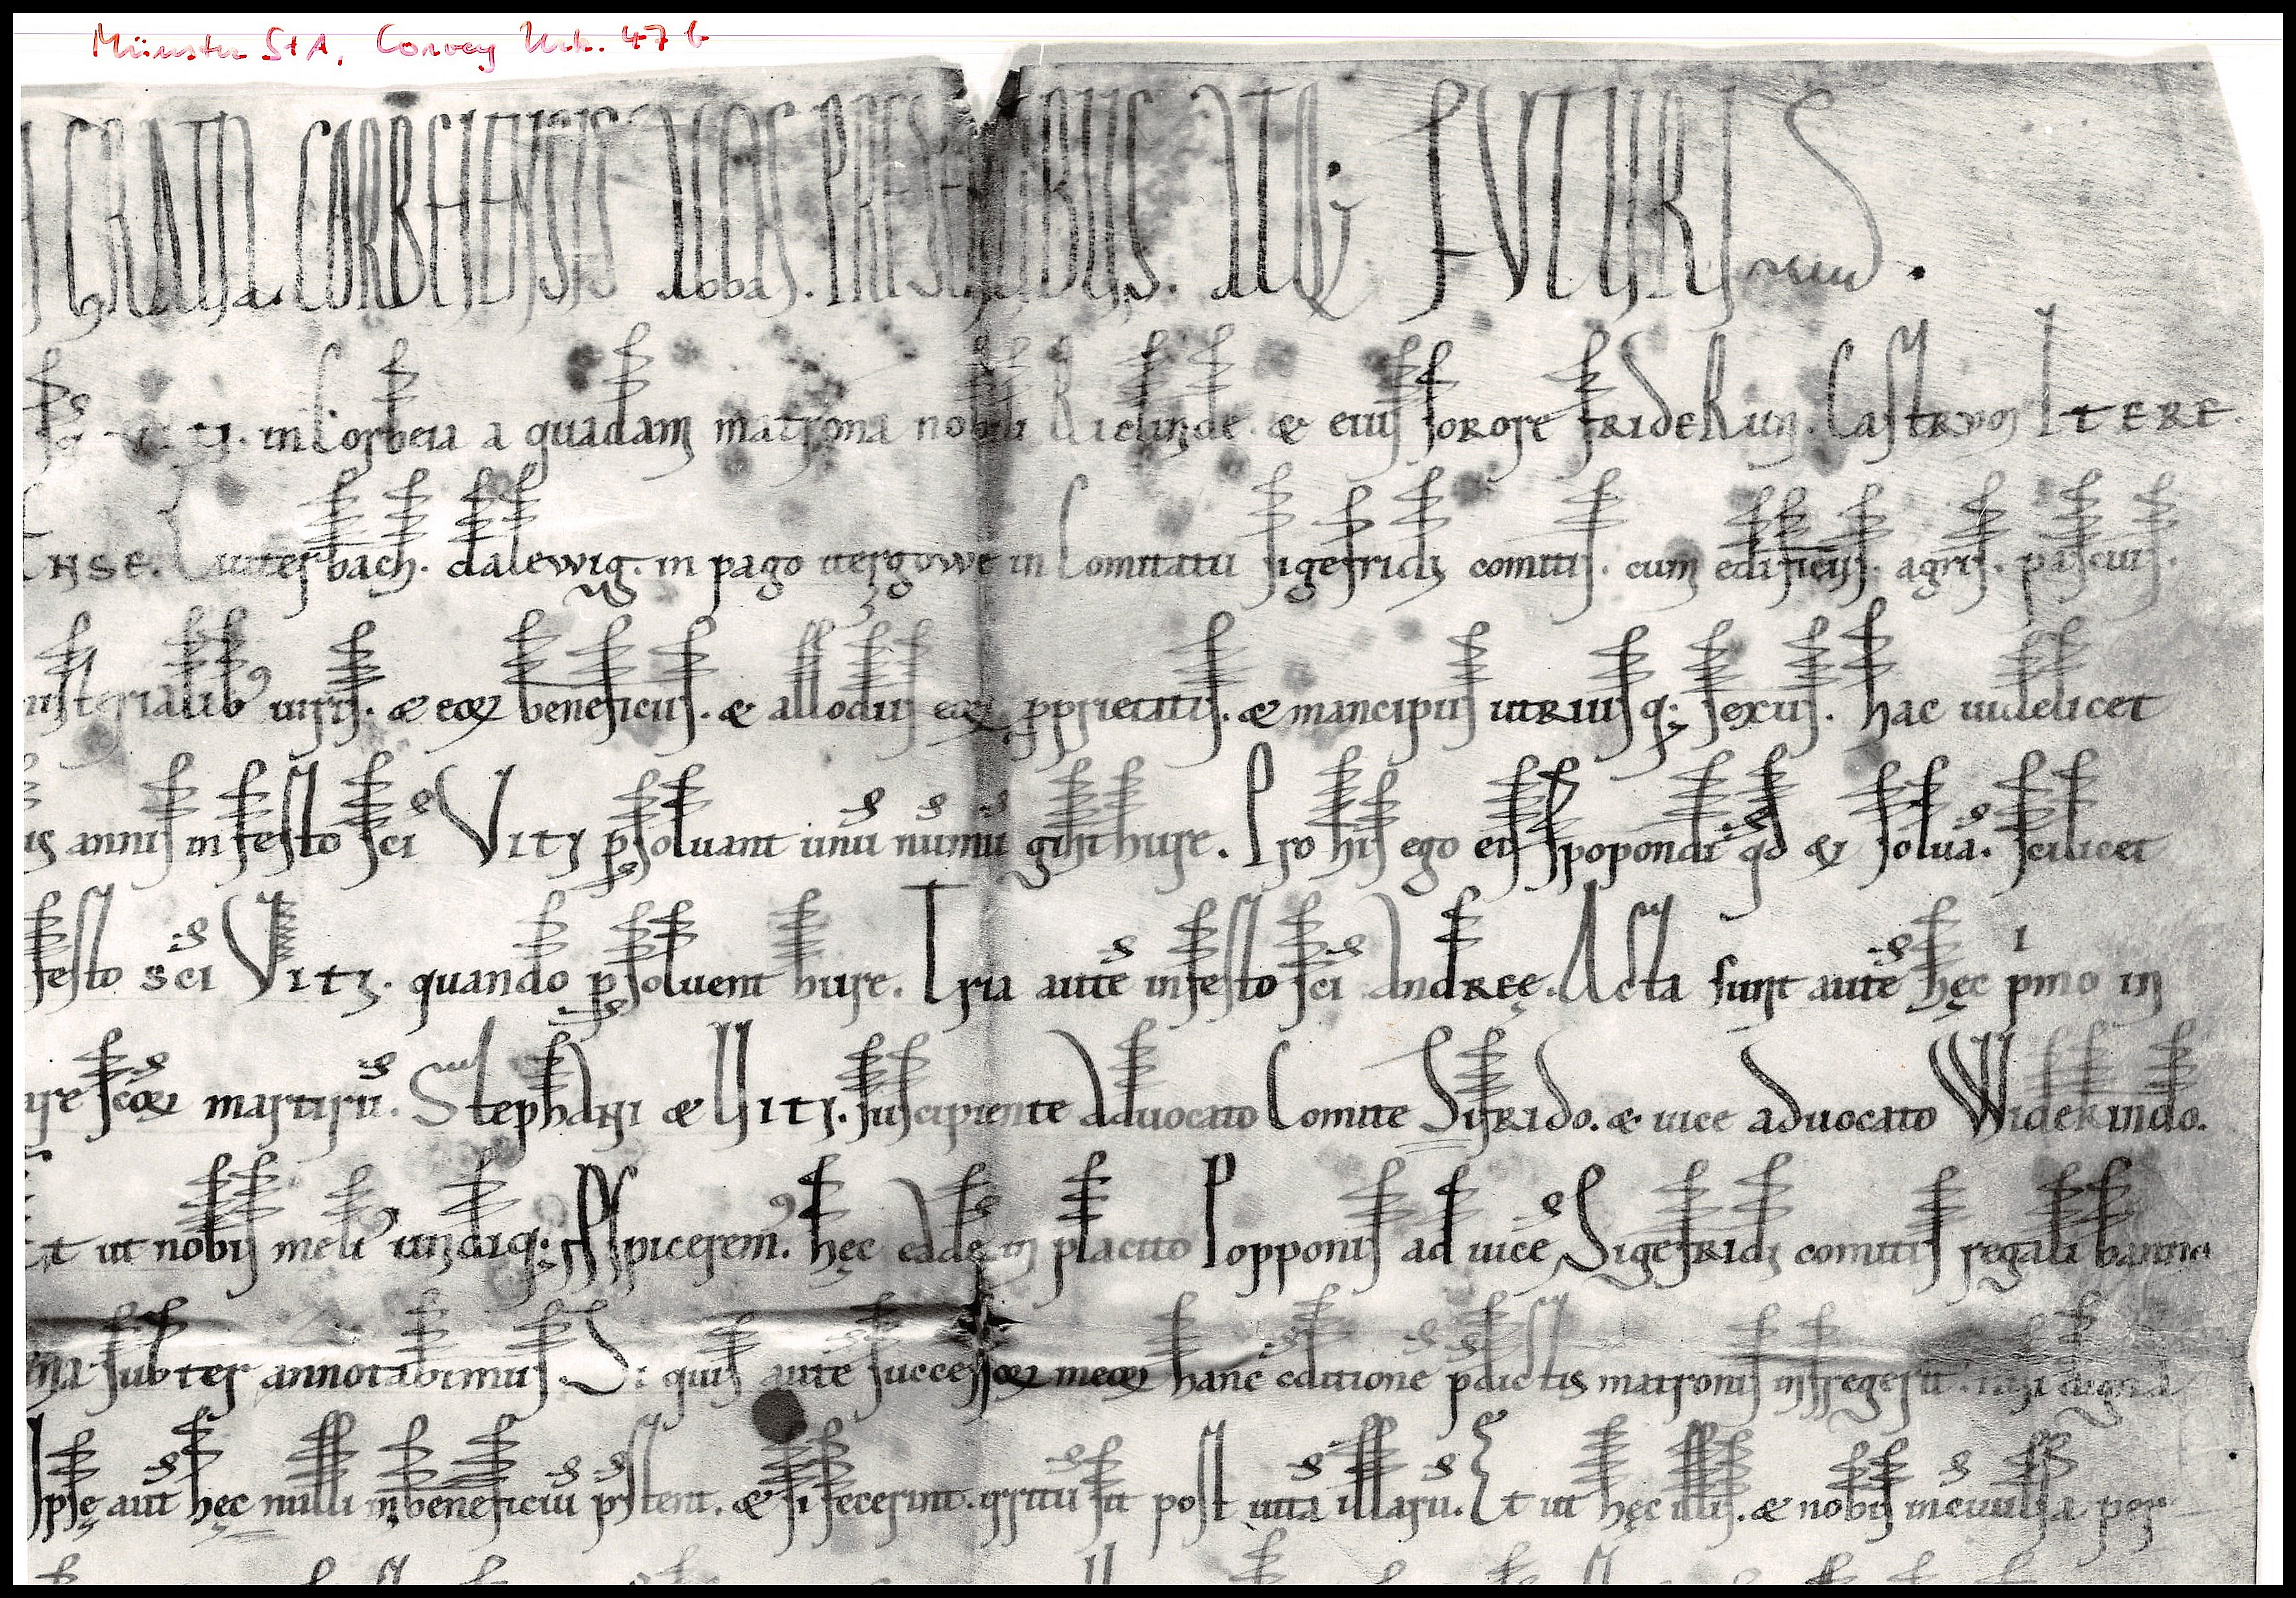 Münster StA, Corvey Urk. 47 b
GRATIA. CORBEIENSIS ABBAS. PRESENTIBUS. ATQ; FUTURIS.
in Corbeia a quadam matrona nobili Riclinde. & eius sorore frideRun. Castrum ITERE.
Luiterbach. dalewig. in pago nergowe in Comitatu sigefridi comitis. cum edificiis. agris. pascuis.
nisterialib᾽ uiris. & eoꝝ beneficiis. & allodiis eoꝝ ꝓprietatis. & mancipiis utriusq; sexus. hac uidelicet
annis in festo sc̄i Viti ꝑsoluant unū nūmū ginhure. Pro his ego eis spopondi qd̄ & soluā. scilicet
festo sc̄i Viti. quando ꝑsoluent hure. Tria autē in festo sc̄i Andreę. Acta sunt autē hęc pⁱmo in
sc̄oꝝ martirū. Stephani & Viti. suscipiente Aduocato Comite Sifrido. & uice aduocato Widekindo.
Et ut nobis meli᾽ undiq; ꝓspicerem᾽. hęc eadē in placito Popponis ad uicē Sigefridi comitis regali banno
subter annotabimus. Si quis autē successoꝝ meoꝝ hanc cditionē p̄dictis matronis infregerit. nisi digna
Ipsę aut̄ hęc nulli in beneficiū p̄stent. & si fecerint. irritū sit post uitā illarū. Et ut hęc illis. & nobis incōuulsa per